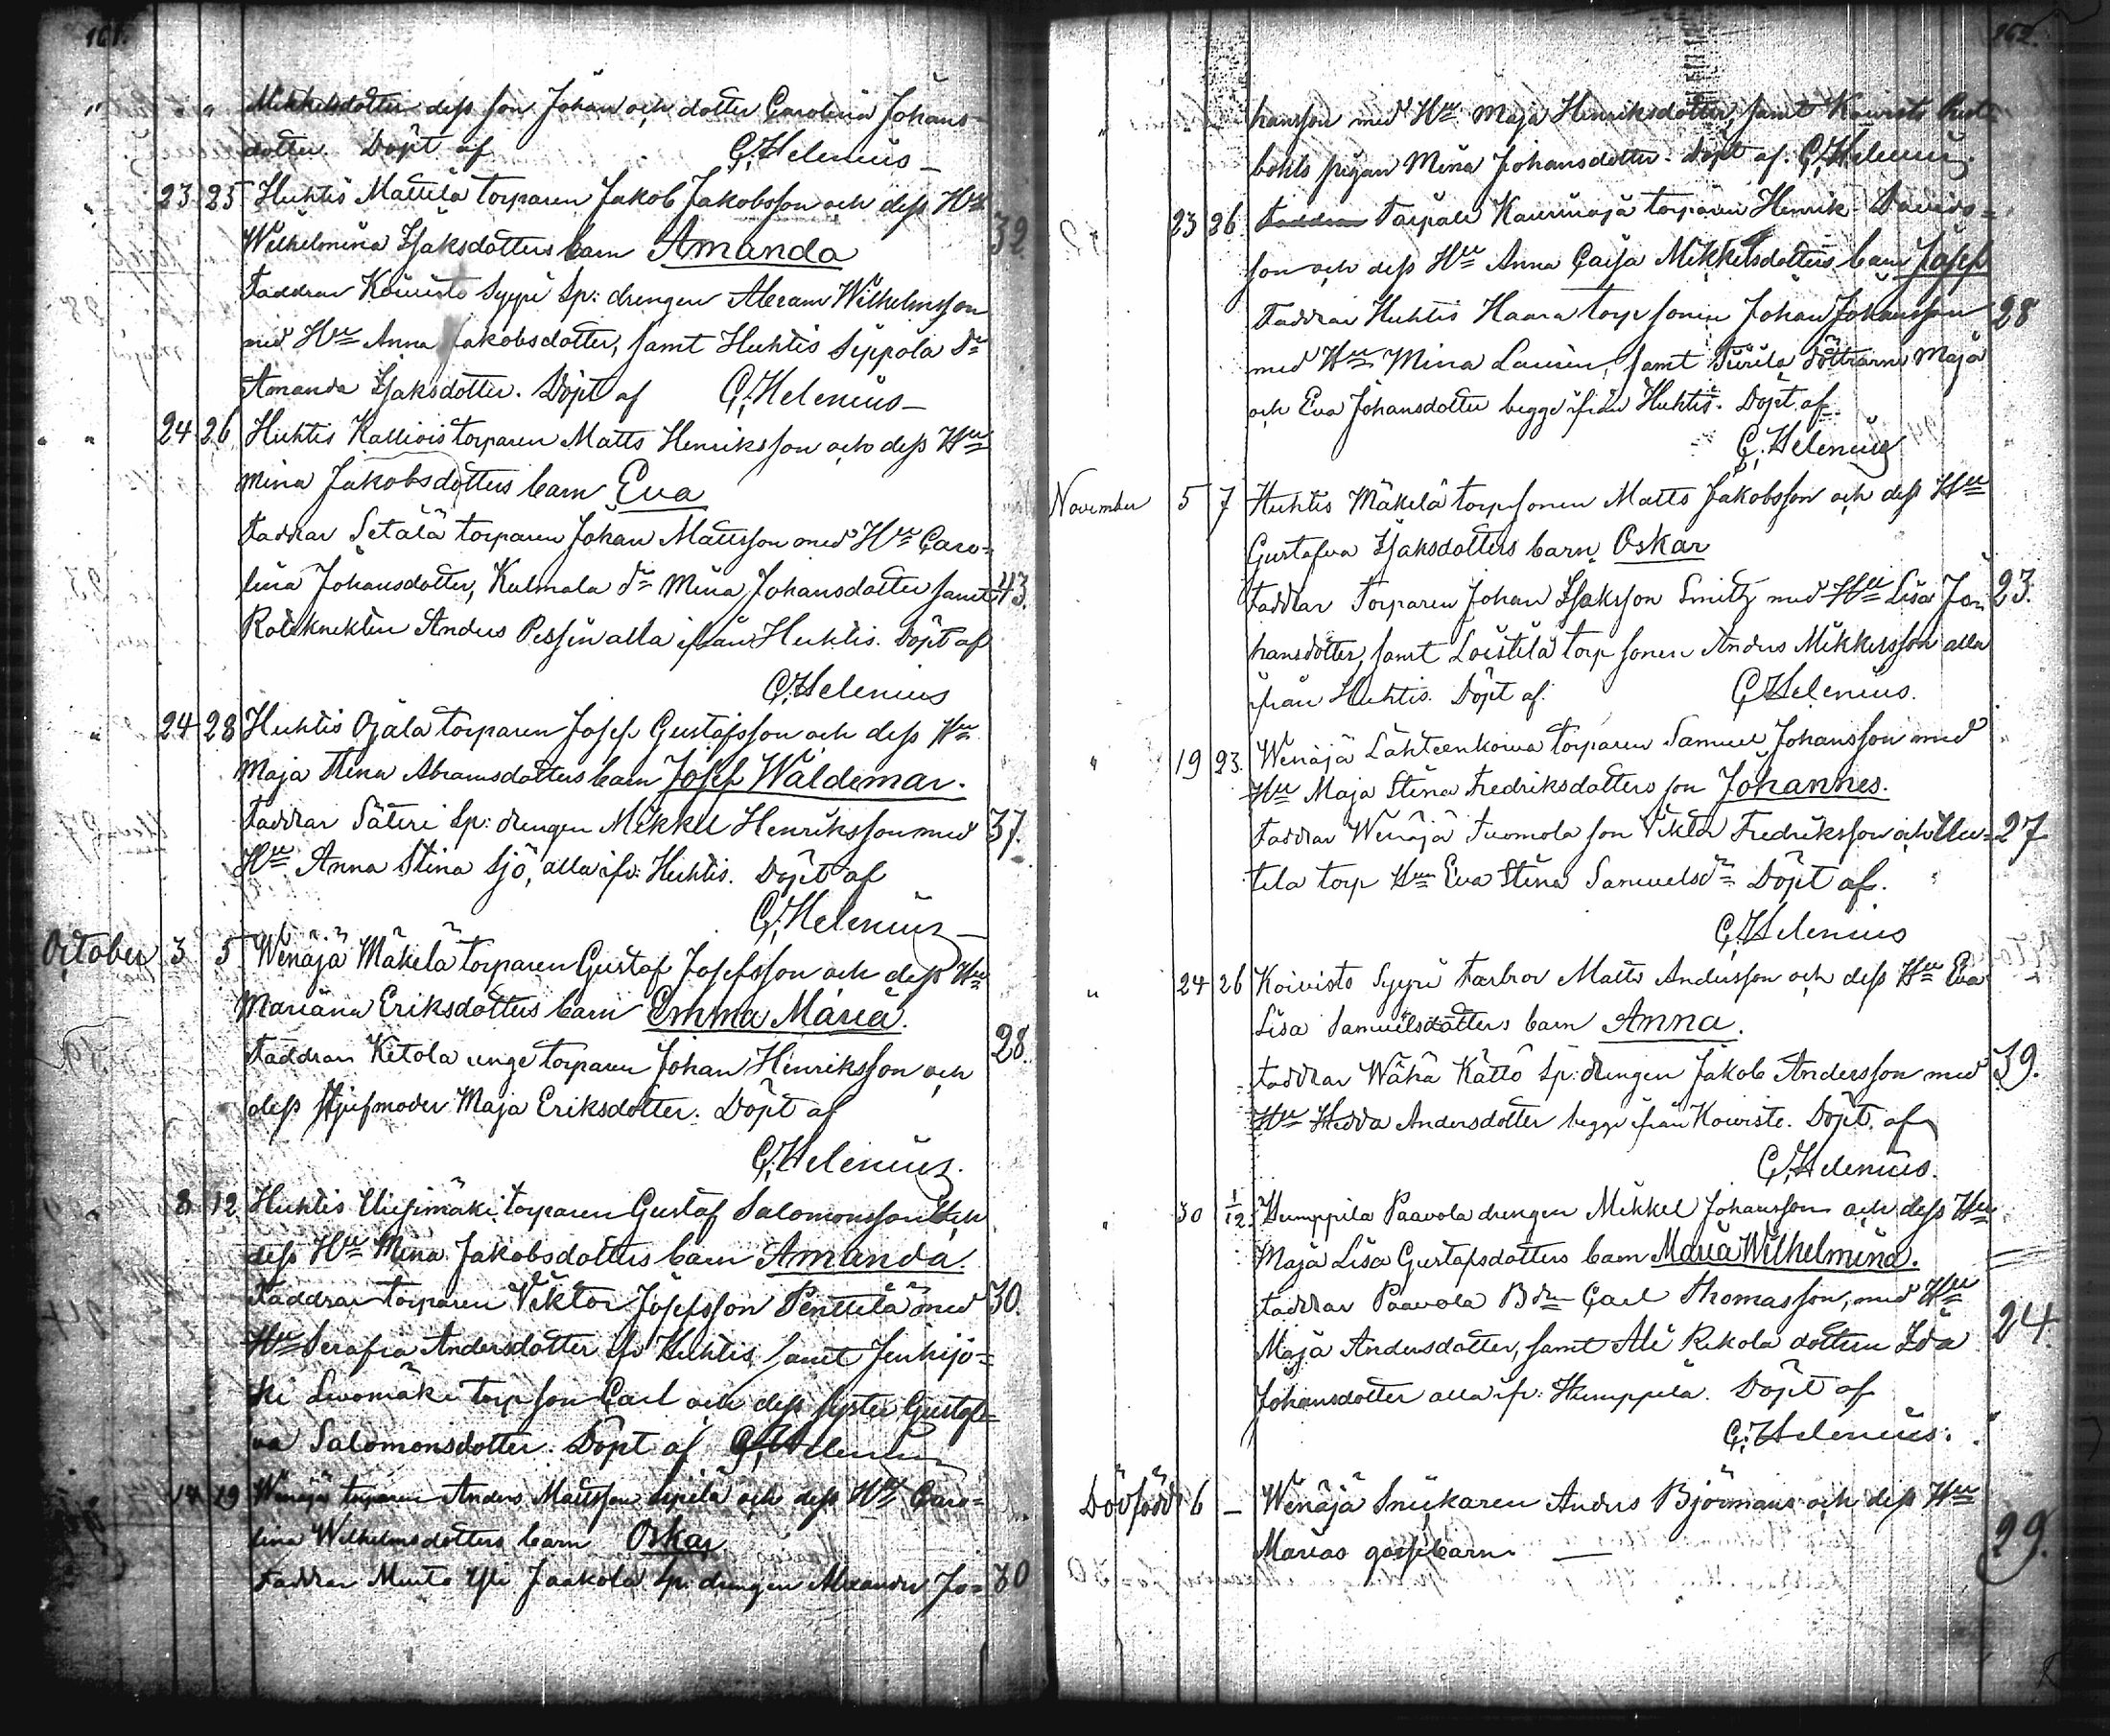 161.
" " Mikkelsdotter dess son Johan och dotter Carolina Johans-
dotter. Döpt af C. Helenius
" 23 25 Huhtis Mattila torparen Jakob Jakobsson och dess Hu
Wilhelmina Isaksdotters barn Amanda 32
Faddrar Koivisto Syyri Sp: drengen Abram Wilhelmsson
med Hu Anna Jakobsdotter, samt Huhtis Seppälä dr
Amanda Isaksdotter. Döpt af C. Helenius
" " 24 26 Huhtis Kalliois torparen Matts Henriksson och dess Hu
Mina Jakobsdotters barn Eva
Faddrar Setälä torparen Johan Mattsson med Hu Caro-
lina Johansdotter, Kulmala dr Mina Johansdotter samt 43.
Roteknekten Anders Pessin alla ifrån Huhtis. Döpt af
C. Helenius
" 24 28 Huhtis Ojala torparen Josef Gustafsson och dess Hu
Maja Stina Abramsdotters barn Josef Waldemar.
Faddrar Säteri Sp: drengen Mikkel Henriksson med 37.
Hu Anna Stina Sjö, alla ifr: Huhtis. Döpt af
C. Helenius
October 3 5 Wenäjä Mäkelä torparen Gustaf Josefsson och dess Hu
Mariana Eriksdotters barn Emma Maria.
Faddrar Kitola unge torparen Johan Henriksson och 28.
dess stjufmoder Maja Eriksdotter. Döpt af
C. Helenius.
" 8 12 Huhtis Uusimäki torparen Gustaf Salomonsson och
dess Hu Mina Jakobsdotters barn Amanda.
Faddrar torparen Viktor Josefsson Penttilä med 30.
Hu Serafia Andersdotter ifr Huhtis, samt Jenhijo-
ki torp son Carl och dess syster Gustaf-
va Salomonsdotter. Döpt af C. Helenius
14 19 Wenäjä torparen Anders Mattsson Sipilä och dess Hu Caro-
lina Wilhelmsdotters barn Oskar
Faddrar Murto Yli Jaakola Sp: drengen Alexander Jo- 30
162.
" hansson med Hu Maja Henriksdotter, samt Koivisto Rust-
hålls pigan Mina Johansdotter. Döpt af. C. Helenius.
23 26 Faddrar Taipale Kaurinoja torparen Henrik Davids-
son och dess Hu Anna Caisa Mikkelsdotters barn Josef
Faddrar Huhtis Haara torp sonen Johan Johansson 28
med Hu Mina Laurin, samt Püürilä döttrarne Maja
och Eva Johansdotter begge ifrån Huhtis. Döpt af
C. Helenius
November 5 7 Huhtis Mäkelä torpsonen Matts Jakobsson och dess Hu
Gustafva Isaksdotters barn Oskar
Faddrar Torparen Johan Isaksson Smitz med Hu Lisa Jo- 23.
hansdotter, samt Loistila torp sonen Anders Mikkelsson alla
ifrån Huhtis. Döpt af. C. Helenius.
" 19 23. Wenäjä Lähteenkorva torparen Samuel Johansson med
Hu Maja Stina Fredriksdotters son Johannes.
Faddrar Wenäjä Tuomola son Viktor Fredriksson och Uu- 27
tela torp Hu Eva Stina Samuelsdr Döpt af.
C. Helenius
" 24 26 Koivisto Syyri Farbror Matts Andersson och dess Hu Eva
Lisa Samuelsdotters barn Anna.
Faddrar Wähä Kättö Sp: drengen Jakob Andersson med 39.
Hu Hedda Andersdotter begge ifrån Koivisto. Döpt af
C. Helenius.
" 30 1/12 Humppila Paavola drengen Mikkel Johansson och dess Hu
Maja Lisa Gustafsdotters barn Maria Wilhelmina.
Faddrar Paavola Bdn Carl Thomasson, med Hu 24.
Maja Andersdotter, samt Ali Rekola dottren Ida
Johansdotter alla ifr: Humppila. Döpt af
C. Helenius.
Dödfödd 6 — Wenäjä Snickaren Anders Björnmans och dess Hu
Marias gossebarn — 29.